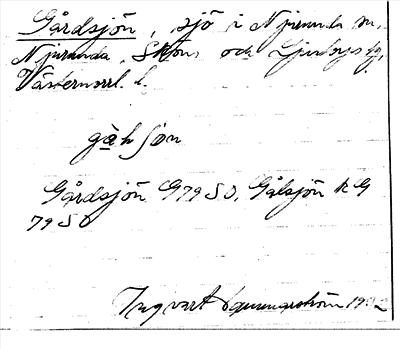 Gårdsjön, sjö i Njurunda sn,
Njurunda, Sköns och Ljustorps tg,
Västernorrl. l.
gàh ſon
Gårdsjön G79SO, Gålsjön RG
79SO
Ingvart 19